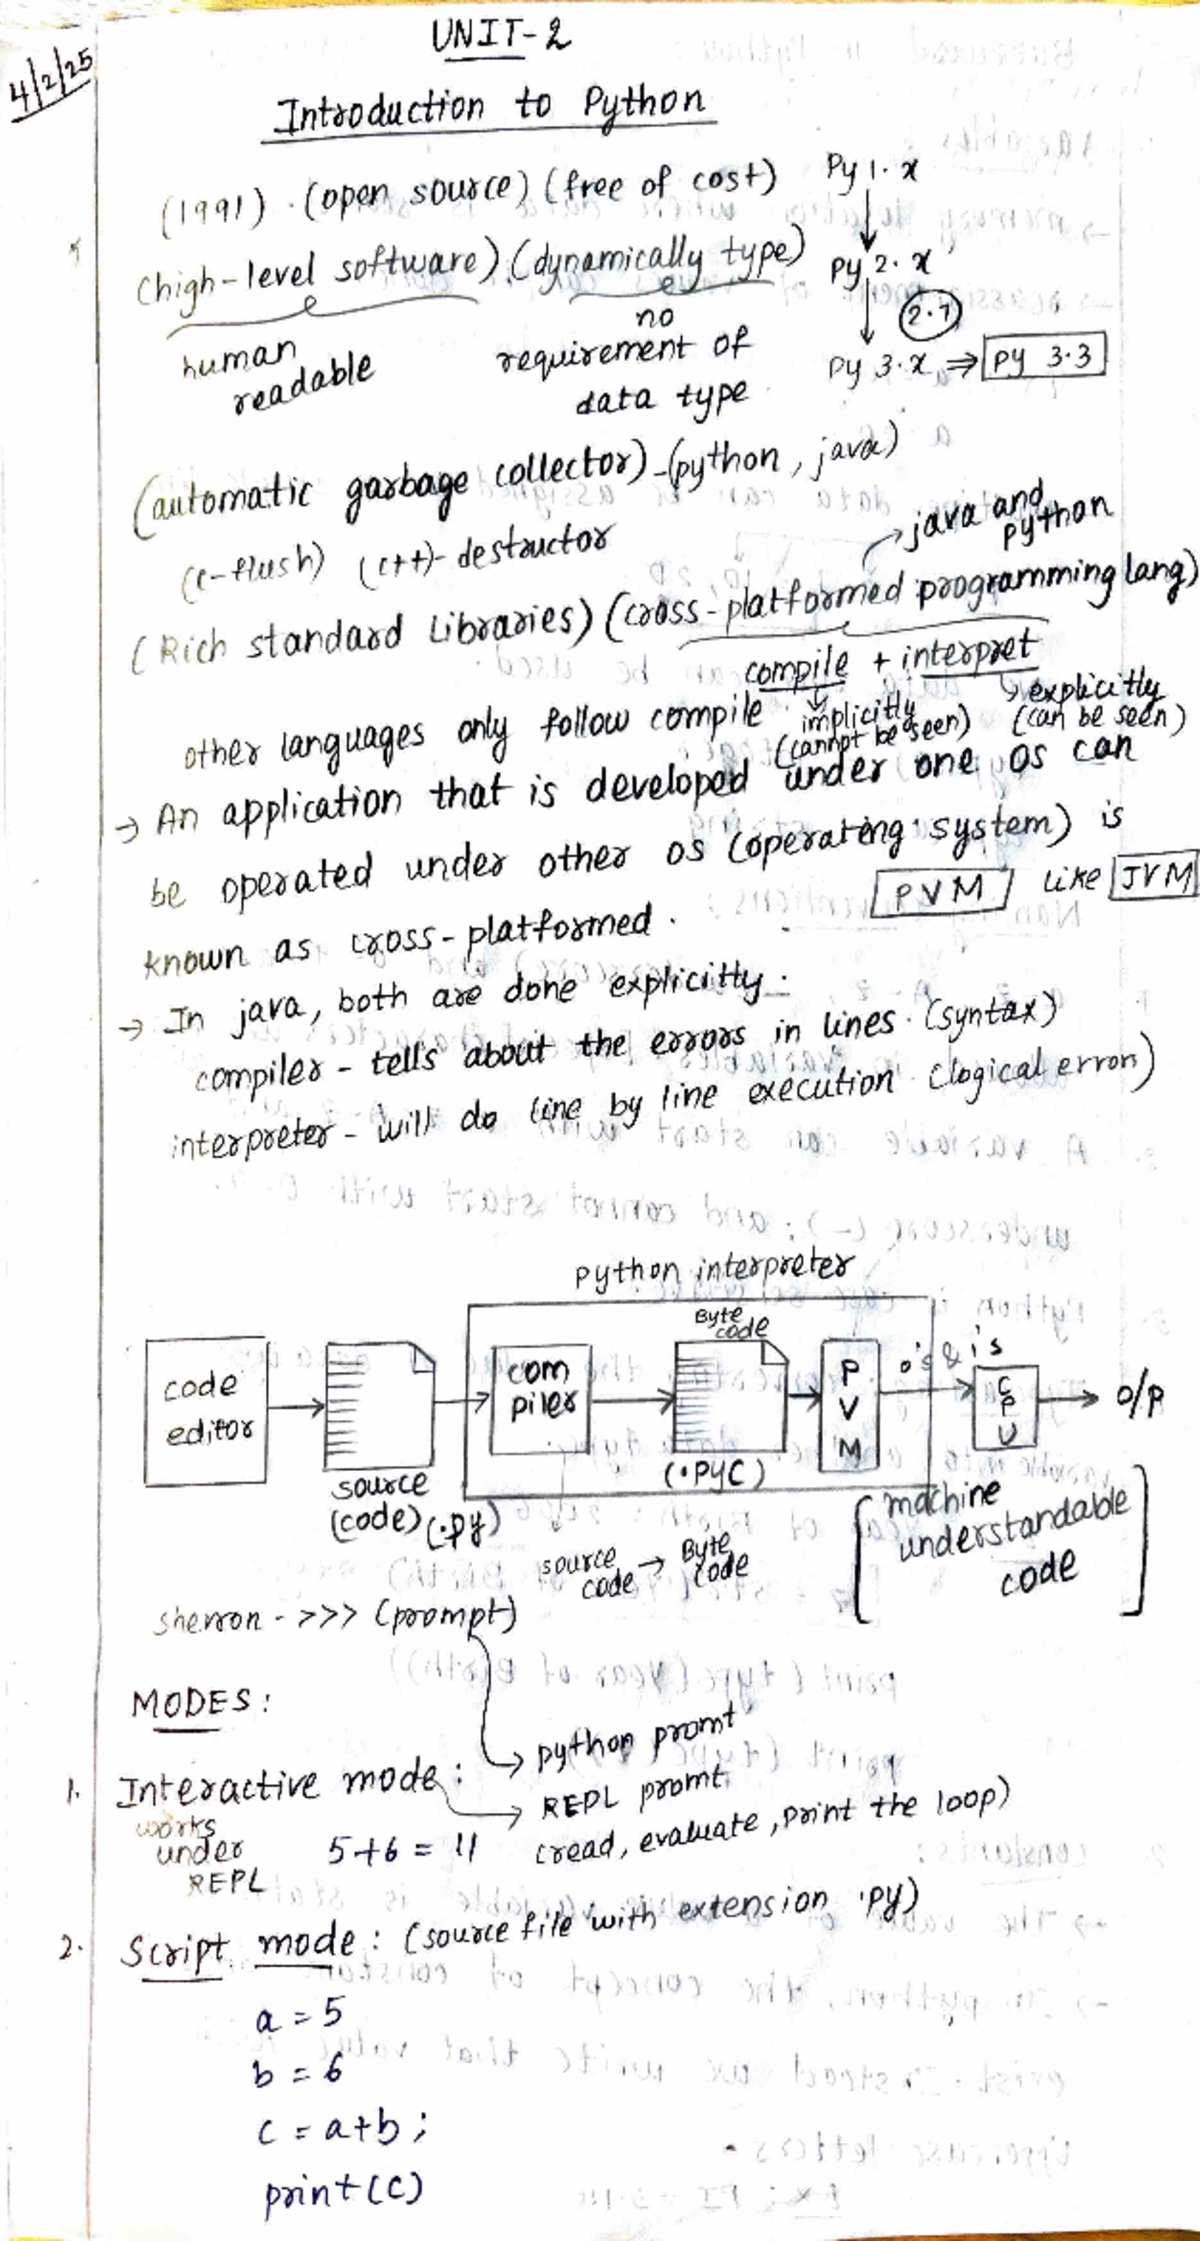 4/2/25
UNIT-2
Introduction to Python
(1991) . (open source) (free of cost)
Py 1.x
(high-level software) (dynamically type)
Py 2.x
2.7
human readable
no requirement of data type
Py 3.x ⇒ py 3.3
(automatic garbage collector) - (python, java)
(c-flush) (c++)- destructor
java and python
(Rich standard Libraries) (cross-platformed programming lang)
compile + interpret
other languages only follow compile
implicitly (cannot be seen)
explicitly (can be seen)
→ An application that is developed under one OS can
be operated under other OS (operating system) is
known as cross-platformed.
PVM like JVM
→ In java, both are done explicitly.
compiler - tells about the errors in lines. (syntax)
interpreter - will do line by line execution (logical error)
python interpreter
code editor
source (code) (.py)
compiler
Byte code
(.pyc)
PVM
0's & 1's
CPU
O/P
source code → Byte code
machine understandable code
sherron - >>> (prompt)
MODES:
python promt
1. Interactive mode:
REPL promt
works under REPL
5+6 = 11
(read, evaluate, print the loop)
2. Script mode: (source file with extension .py)
a = 5
b = 6
c = a+b;
print(c)